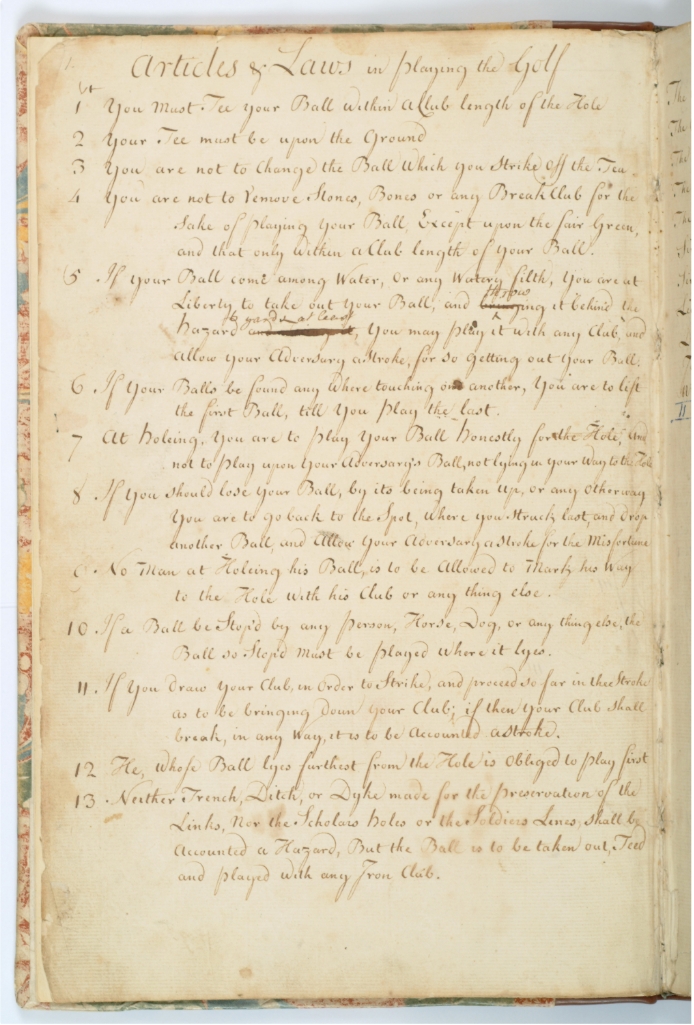 Articles & Laws in playing the Golf
1st You Must Tee your Ball within a Club length of the Hole
2 Your Tee must be upon the Ground
3 You are not to Change the Ball which you Strike off the Tee
4 You are not to Remove Stones, Bones or any Break Club for the
Sake of playing Your Ball, Except upon the fair Green,
and that only within a Club length of Your Ball.
5 If your Ball come among Water, or any Watery filth, You are at
throw
Liberty to take out Your Ball, and bringing it behind the
6 yards at least
hazard, You may play it with any Club, and
allow your Adversary a Stroke, for so Getting out Your Ball.
6 If Your Balls be found any where touching one another, You are to lift
the first Ball, till You play the last.
7 At holeing, You are to play Your Ball honestly for the Hole, and
not to play upon Your Adversary's Ball, not lying in your Way to the Hole
8 If you should lose Your Ball, by its being taken up, or any other way
You are to go back to the Spot, where you Struck last, and drop
another Ball, and Allow Your Adversary a Stroke for the Misfortune
9 No Man at Holeing his Ball, is to be Allowed to Mark his Way
to the Hole with his Club or any thing else.
10 If a Ball be Stop'd by any person, Horse, Dog, or any thing else, the
Ball so Stop'd Must be played where it lyes.
11 If You draw Your Club, in Order to Strike, and proceed so far in the Stroke
as to be bringing down Your Club; if then Your Club shall
break, in any Way, it is to be Accounted a Stroke.
12 He, whose Ball lyes furthest from the Hole is Obliged to play first
13 Neither Trench, Ditch, or Dyke made for the preservation of the
Links, Nor the Scholars holes or the Soldiers Lines, shall be
Accounted a Hazard, But the Ball is to be taken out, Teed
and played with any Iron Club.